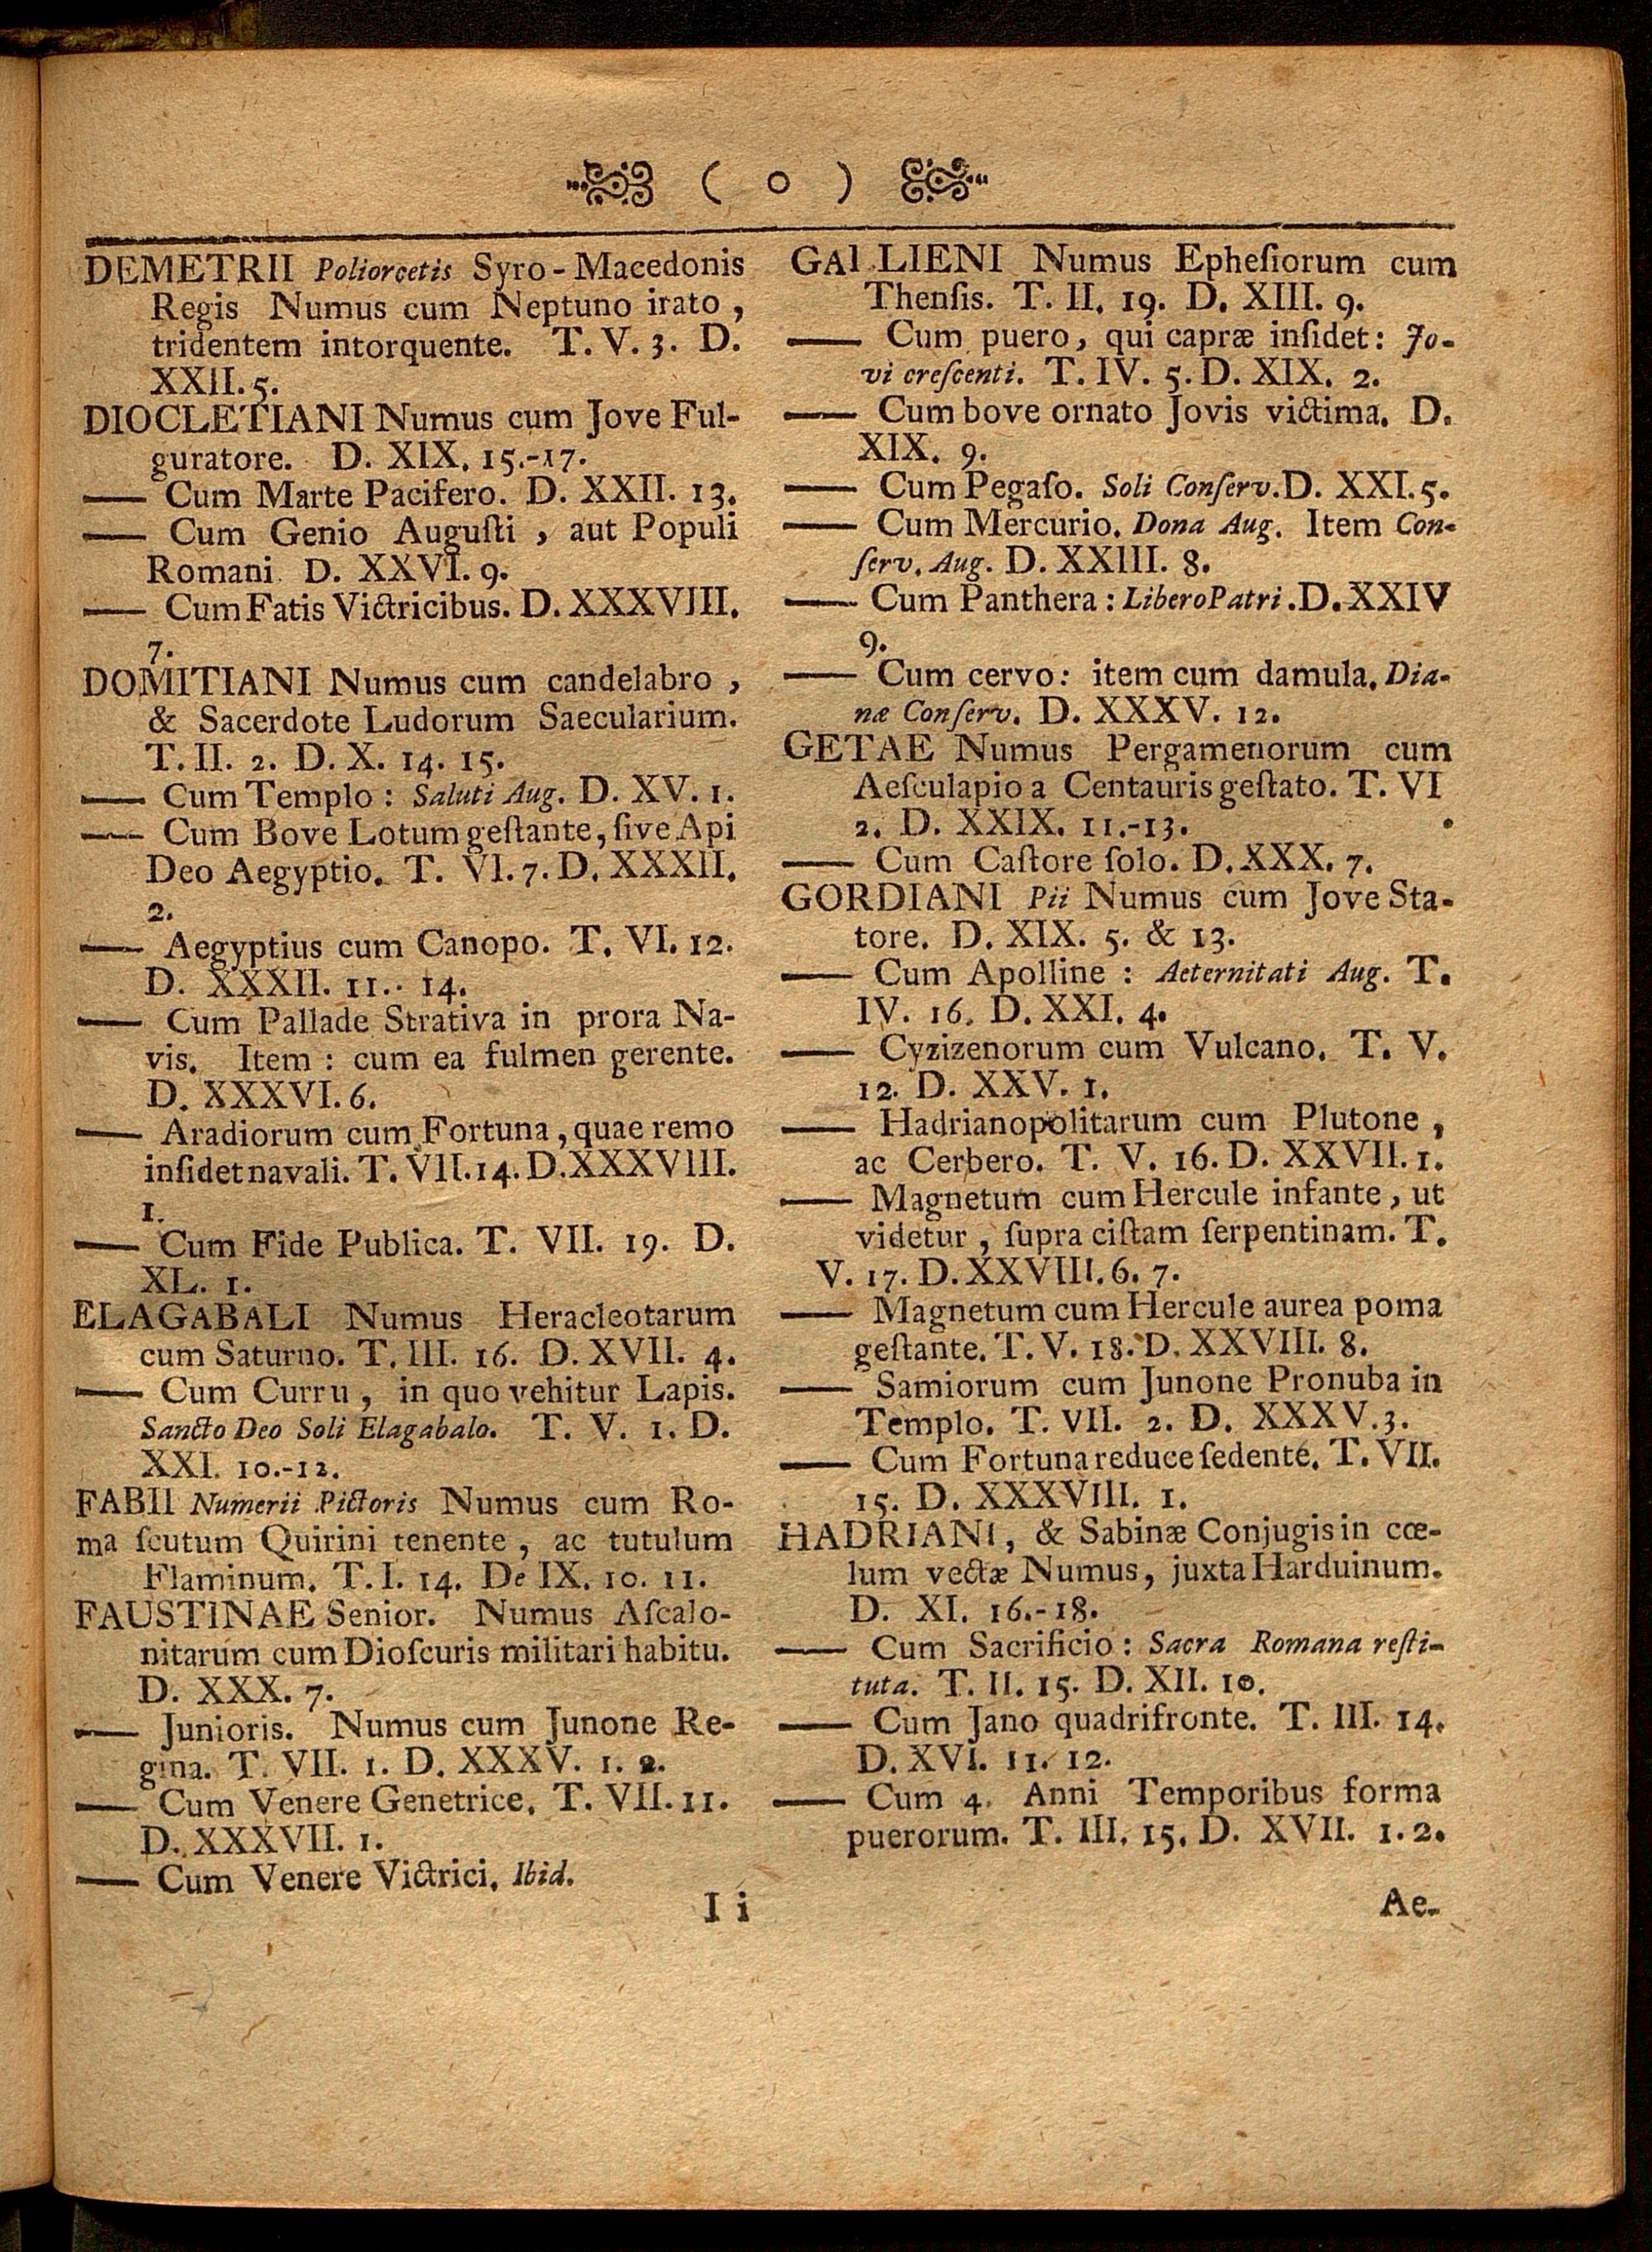 ( o )
DEMETRII Poliorcetis Syro-Macedonis
Regis Numus cum Neptuno irato,
tridentem intorquente. T. V. 3. D.
XXII. 5.
DIOCLETIANI Numus cum Jove Ful-
guratore. D. XIX. 15.-17.
—— Cum Marte Pacifero. D. XXII. 13.
—— Cum Genio Auguſti, aut Populi
Romani D. XXVI. 9.
—— Cum Fatis Victricibus. D. XXXVIII.
7.
DOMITIANI Numus cum candelabro,
& Sacerdote Ludorum Saecularium.
T. II. 2. D. X. 14. 15.
—— Cum Templo: Saluti Aug. D. XV. 1.
—— Cum Bove Lotum geſtante, ſive Api
Deo Aegyptio. T. VI. 7. D. XXXII.
2.
—— Aegyptius cum Canopo. T. VI. 12.
D. XXXII. 11.. 14.
—— Cum Pallade Strativa in prora Na-
vis. Item: cum ea fulmen gerente.
D. XXXVI. 6.
—— Aradiorum cum Fortuna, quae remo
inſidet navali. T. VII. 14. D. XXXVIII.
1.
—— Cum Fide Publica. T. VII. 19. D.
XL. 1.
ELAGABALI Numus Heracleotarum
cum Saturno. T. III. 16. D. XVII. 4.
—— Cum Curru, in quo vehitur Lapis.
Sancto Deo Soli Elagabalo. T. V. 1. D.
XXI. 10.-12.
FABII Numerii Pictoris Numus cum Ro-
ma ſcutum Quirini tenente, ac tutulum
Flaminum. T. I. 14. De IX. 10. 11.
FAUSTINAE Senior. Numus Aſcalo-
nitarum cum Dioſcuris militari habitu.
D. XXX. 7.
—— Junioris. Numus cum Junone Re-
gina. T. VII. 1. D. XXXV. 1. 2.
—— Cum Venere Genetrice. T. VII. 11.
D. XXXVII. 1.
—— Cum Venere Victrici. Ibid.
I i
GALLIENI Numus Epheſiorum cum
Thenſis. T. II. 19. D. XIII. 9.
—— Cum puero, qui capræ inſidet: Jo-
vi creſcenti. T. IV. 5. D. XIX. 2.
—— Cum bove ornato Jovis victima. D.
XIX. 9.
—— Cum Pegaſo. Soli Conſerv. D. XXI. 5.
—— Cum Mercurio. Dona Aug. Item Con-
ſerv. Aug. D. XXIII. 8.
—— Cum Panthera: Libero Patri. D. XXIV
9.
—— Cum cervo: item cum damula. Dia-
næ Conſerv. D. XXXV. 12.
GETAE Numus Pergamenorum cum
Aeſculapio a Centauris geſtato. T. VI
2. D. XXIX. 11.-13.
—— Cum Caſtore ſolo. D. XXX. 7.
GORDIANI Pii Numus cum Jove Sta-
tore. D. XIX. 5. & 13.
—— Cum Apolline: Aeternitati Aug. T.
IV. 16. D. XXI. 4.
—— Cyzizenorum cum Vulcano. T. V.
12. D. XXV. 1.
—— Hadrianopolitarum cum Plutone,
ac Cerbero. T. V. 16. D. XXVII. 1.
—— Magnetum cum Hercule infante, ut
videtur, ſupra ciſtam ſerpentinam. T.
V. 17. D. XXVIII. 6. 7.
—— Magnetum cum Hercule aurea poma
geſtante. T. V. 18. D. XXVIII. 8.
—— Samiorum cum Junone Pronuba in
Templo. T. VII. 2. D. XXXV. 3.
—— Cum Fortuna reduce ſedente. T. VII.
15. D. XXXVIII. 1.
HADRIANI, & Sabinæ Conjugis in cœ-
lum vectæ Numus, juxta Harduinum.
D. XI. 16.-18.
—— Cum Sacrificio: Sacra Romana reſti-
tuta. T. II. 15. D. XII. 10.
—— Cum Jano quadrifronte. T. III. 14.
D. XVI. 11. 12.
—— Cum 4. Anni Temporibus forma
puerorum. T. III. 15. D. XVII. 1. 2.
Ae-